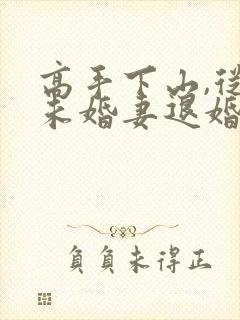 高手下山,從
未婚妻退婚
負負未得正